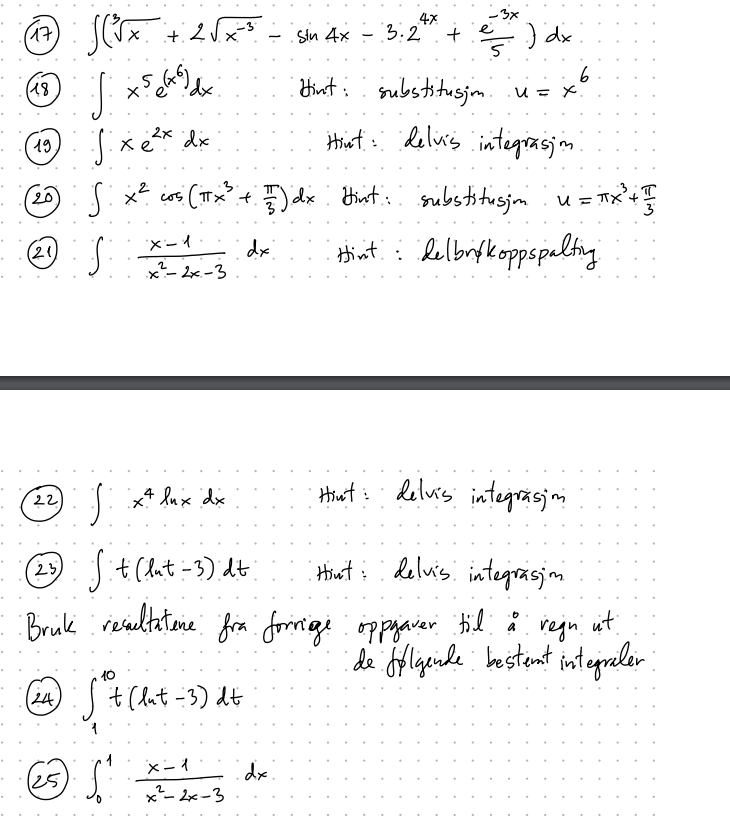 17 ∫(∛x + 2√x⁻³ − sin 4x − 3·2⁴ˣ + e⁻³ˣ/5) dx
18 ∫ x⁵ e^(x⁶) dx Hint: substitusjon u = x⁶
19 ∫ x e²ˣ dx Hint: delvis integrasjon
20 ∫ x² cos(πx³ + π/3) dx Hint: substitusjon u = πx³ + π/3
21 ∫ (x−1)/(x²−2x−3) dx Hint: delbrøkoppspalting
22 ∫ x⁴ ln x dx Hint: delvis integrasjon
23 ∫ t(ln t − 3) dt Hint: delvis integrasjon
Bruk resultatene fra forrige oppgaver til å regn ut
de følgende bestemt integraler
24 ∫₁¹⁰ t(ln t − 3) dt
25 ∫₀¹ (x−1)/(x²−2x−3) dx